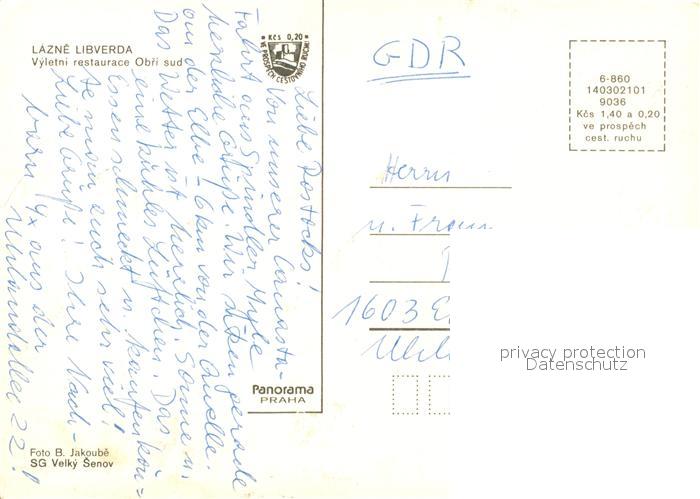 LÁZNĚ LIBVERDA
Výletní restaurace Obří sud
Kčs 0,20
VE PROSPĚCH CESTOVNÍHO RUCHU
GDR
6-860
140302101
9036
Kčs 1,40 a 0,20
ve prospěch
cest. ruchu
Liebe Rostocks!
Von unserer
Fahrt aus Spindler Mühle
herzliche Grüße. Wir sitzen gerade
an der Elbe - 6km von der Quelle.
Das Wetter ist herrlich. Sonne u.
eine kühles Lüftchen. Das
Essen schmeckt u. kaufen kön=
te man auch sehr viel!
Liebe Grüße! Ihre Nach-
barn 4x aus der
Uhlandallee 22!
Herrn
u. Frau
1603
Uhl
Panorama
PRAHA
Foto B. Jakoubě
SG Velký Šenov
privacy protection
Datenschutz